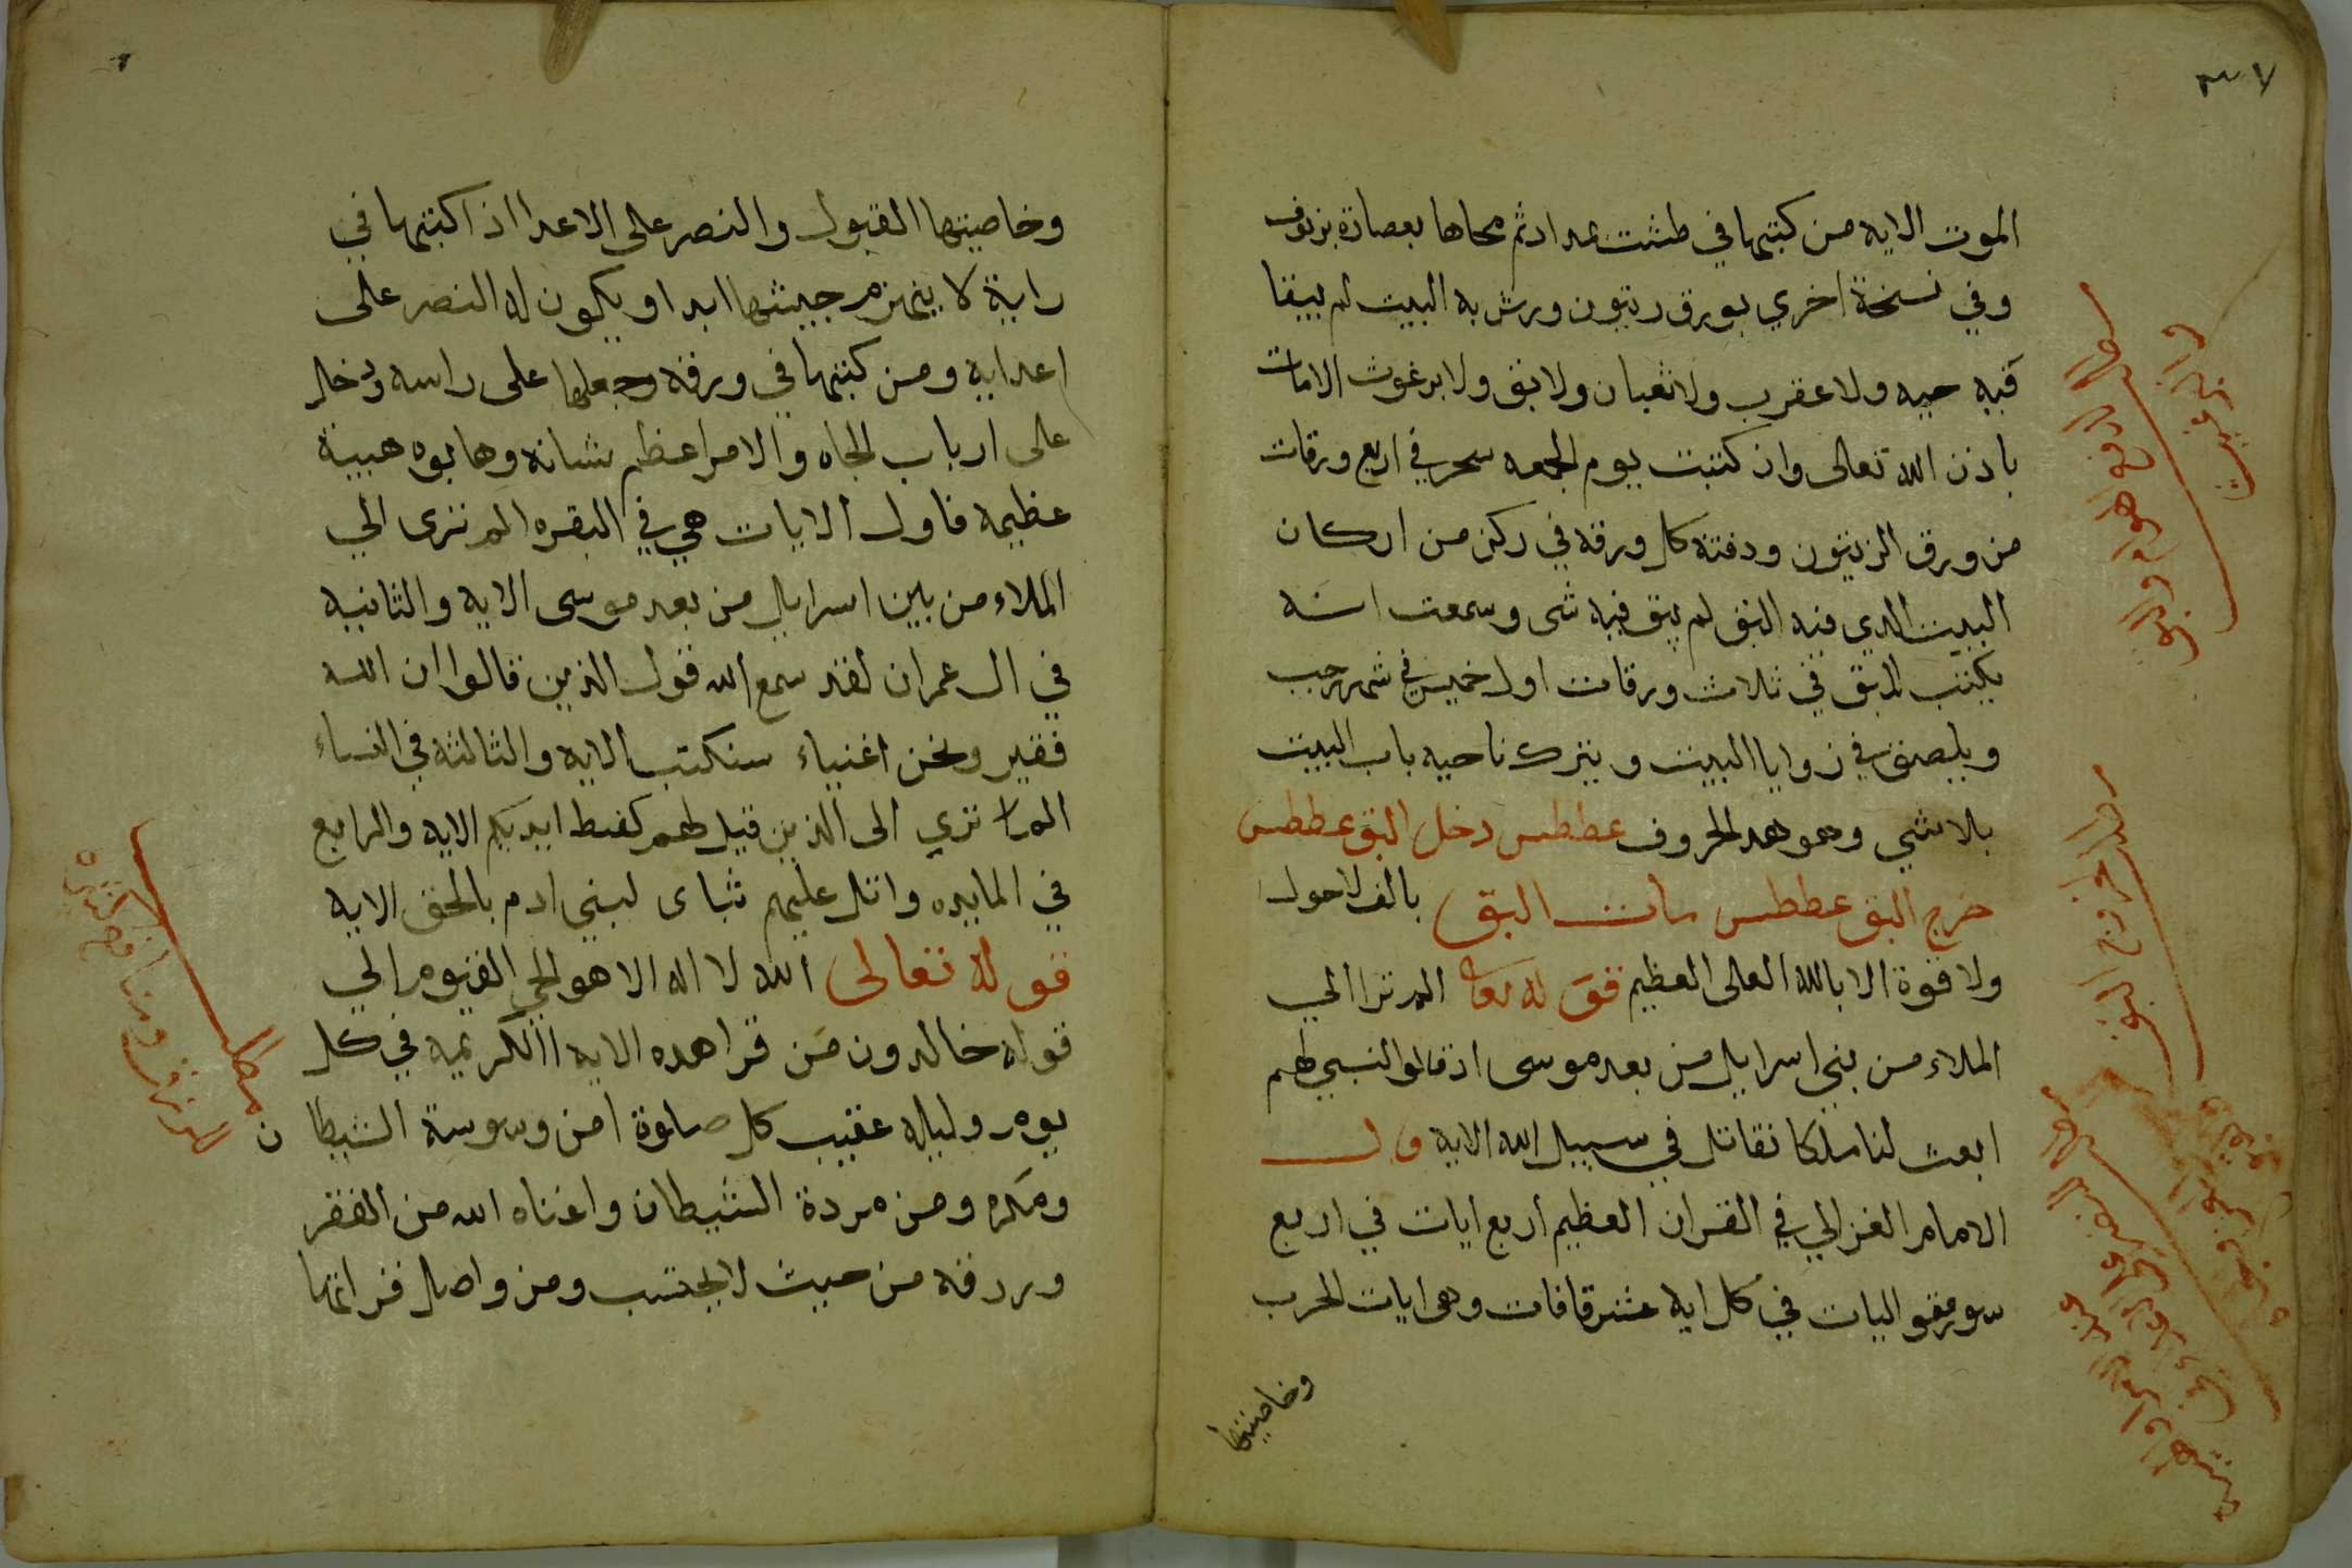 الموت الايه من كتبها في طشت مداد ثم محاها بعصارة برنوف
وفي نسخة اخري بورق زيتون ورش به البيت لم يبقا
فيه حيه ولا عقرب ولا ثعبان ولا بق ولا برغوث الامات
باذن الله تعالى وان كتبت يوم الجمعه سحر في اربع ورقات
من ورق الزيتون ودفته كل ورقه في ركن من اركان
البيت الدي فيه البق لم يبق فيه شى وسمعت انه
يكتب للبق في ثلاث ورقات اول خميس في شهر رجب
ويلصق في زوايا البيت ويترك ناحيه باب البيت
بلا شي وهو هده الحروف عططس دخل البق عططس
خرج البق عططس مات البق بالف لا حول
ولا قوة الا بالله العلى العظيم قوله تعالى الم ترا الي
الملاء من بني اسرايل من بعد موسى اذ قالوا لنبي لهم
ابعث لنا ملكا نقاتل في سبيل الله الايه قال
الامام الغزالي في القران العظيم اربع ايات في اربع
سور متواليات في كل ايه عشر قافات وهى ايات الحرب
وخاصيتها
وخاصيتها القبول والنصر على الاعدا اذا كتبتها في
راية لا ينهزم جيشها ابدا ويكون له النصر على
اعدايه ومن كتبها في ورقه وجعلها على راسه ودخل
على ارباب الجاه والامر اعظم شانه وهابوه هيبة
عظيمه فاول الايات هي في البقره الم ترى الي
الملاء من بين اسرايل من بعد موسى الايه والثانيه
في ال عمران لقد سمع الله قول الذين قالوا ان الله
فقير ونحن اغنياء سنكتب الايه والثالثة في النساء
الم تري الى الذين قيل لهم كفط ايديكم الايه والرابع
في المايده واتل عليهم نباى لبني ادم بالحق الايه
قوله تعالى الله لا اله الا هو الحي القيوم الي
قوله خالدون من قرا هده الايه الكريمه في كل
يوم وليله عقيب كل صلوة امن وسوسة الشيطان
ومكره ومن مردة الشيطان واغناه الله من الفقر
وردقه من حيث لا يحتسب ومن واصل قراتها
مطلب